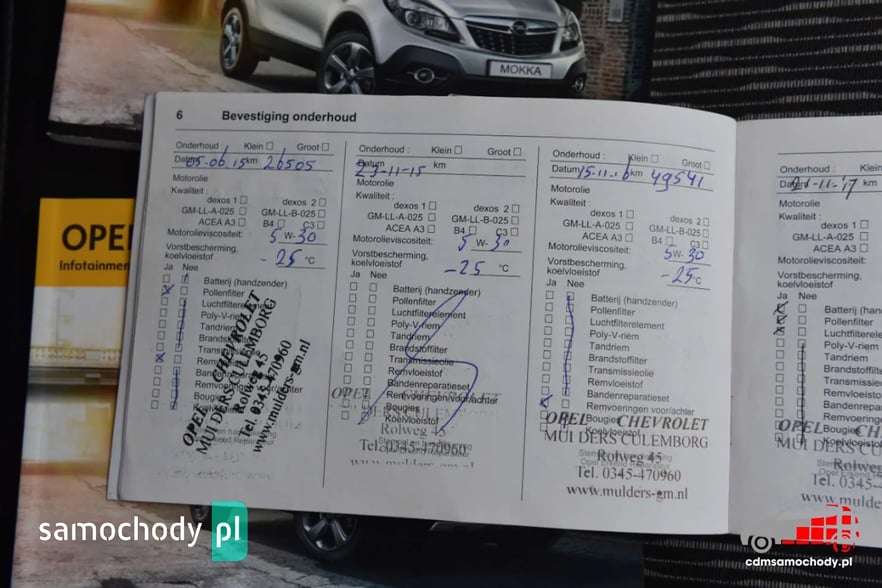 MOKKA
OPEL
Infotainmen
6 Bevestiging onderhoud
Onderhoud : Klein □ Groot □
Datum 05-06-15 km 26505
Motorolie
Kwaliteit :
dexos 1 □ dexos 2 □
GM-LL-A-025 □ GM-LL-B-025 □
ACEA A3 □ B4 □ C3 □
Motorolieviscositeit: 5 W- 30
Vorstbescherming,
koelvloeistof - 25 °C
Ja Nee
Batterij (handzender)
Pollenfilter
Luchtfilterelement
Poly-V-riem
Tandriem
Brandstoffilter
Transmissieolie
Remvloeistof
Bandenreparatieset
Remvoeringen voor/achter
Bougies
Koelvloeistof
OPEL CHEVROLET
MULDERS CULEMBORG
Rolweg 45
Tel. 0345-470960
www.mulders-gm.nl
Onderhoud : Klein □ Groot □
Datum 23-11-15 km
Motorolie
Kwaliteit :
dexos 1 □ dexos 2 □
GM-LL-A-025 □ GM-LL-B-025 □
ACEA A3 □ B4 □ C3 □
Motorolieviscositeit: 5 W- 30
Vorstbescherming,
koelvloeistof - 25 °C
Ja Nee
Batterij (handzender)
Pollenfilter
Luchtfilterelement
Poly-V-riem
Tandriem
Brandstoffilter
Transmissieolie
Remvloeistof
Bandenreparatieset
Remvoeringen voor/achter
Bougies
Koelvloeistof
OPEL CHEVROLET
MULDERS CULEMBORG
Rolweg 45
Tel. 0345-470960
www.mulders-gm.nl
Onderhoud : Klein □ Groot □
Datum 15-11-16 km 49541
Motorolie
Kwaliteit :
dexos 1 □ dexos 2 □
GM-LL-A-025 □ GM-LL-B-025 □
ACEA A3 □ B4 □ C3 □
Motorolieviscositeit: 5W- 30
Vorstbescherming,
koelvloeistof -25 °C
Ja Nee
Batterij (handzender)
Pollenfilter
Luchtfilterelement
Poly-V-riem
Tandriem
Brandstoffilter
Transmissieolie
Remvloeistof
Bandenreparatieset
Remvoeringen voor/achter
Bougies
Koelvloeistof
OPEL CHEVROLET
MULDERS CULEMBORG
Rolweg 45
Tel. 0345-470960
www.mulders-gm.nl
Onderhoud : Klein □
-11-17 km
Motorolie
Kwaliteit :
dexos 1 □
GM-LL-A-025 □
ACEA A3 □
Motorolieviscositeit:
Vorstbescherming,
koelvloeistof
Ja Nee
Batterij (hand
Pollenfilter
Luchtfilterele
Poly-V-riem
Tandriem
Brandstoffilte
Transmissie
Remvloeistof
Bandenrepa
Remvoering
Bougies
Koelvloeistof
OPEL CH
MULDERS CU
Rolweg
Tel. 0345-4
www.mulde
samochody pl
cdmsamochody.pl